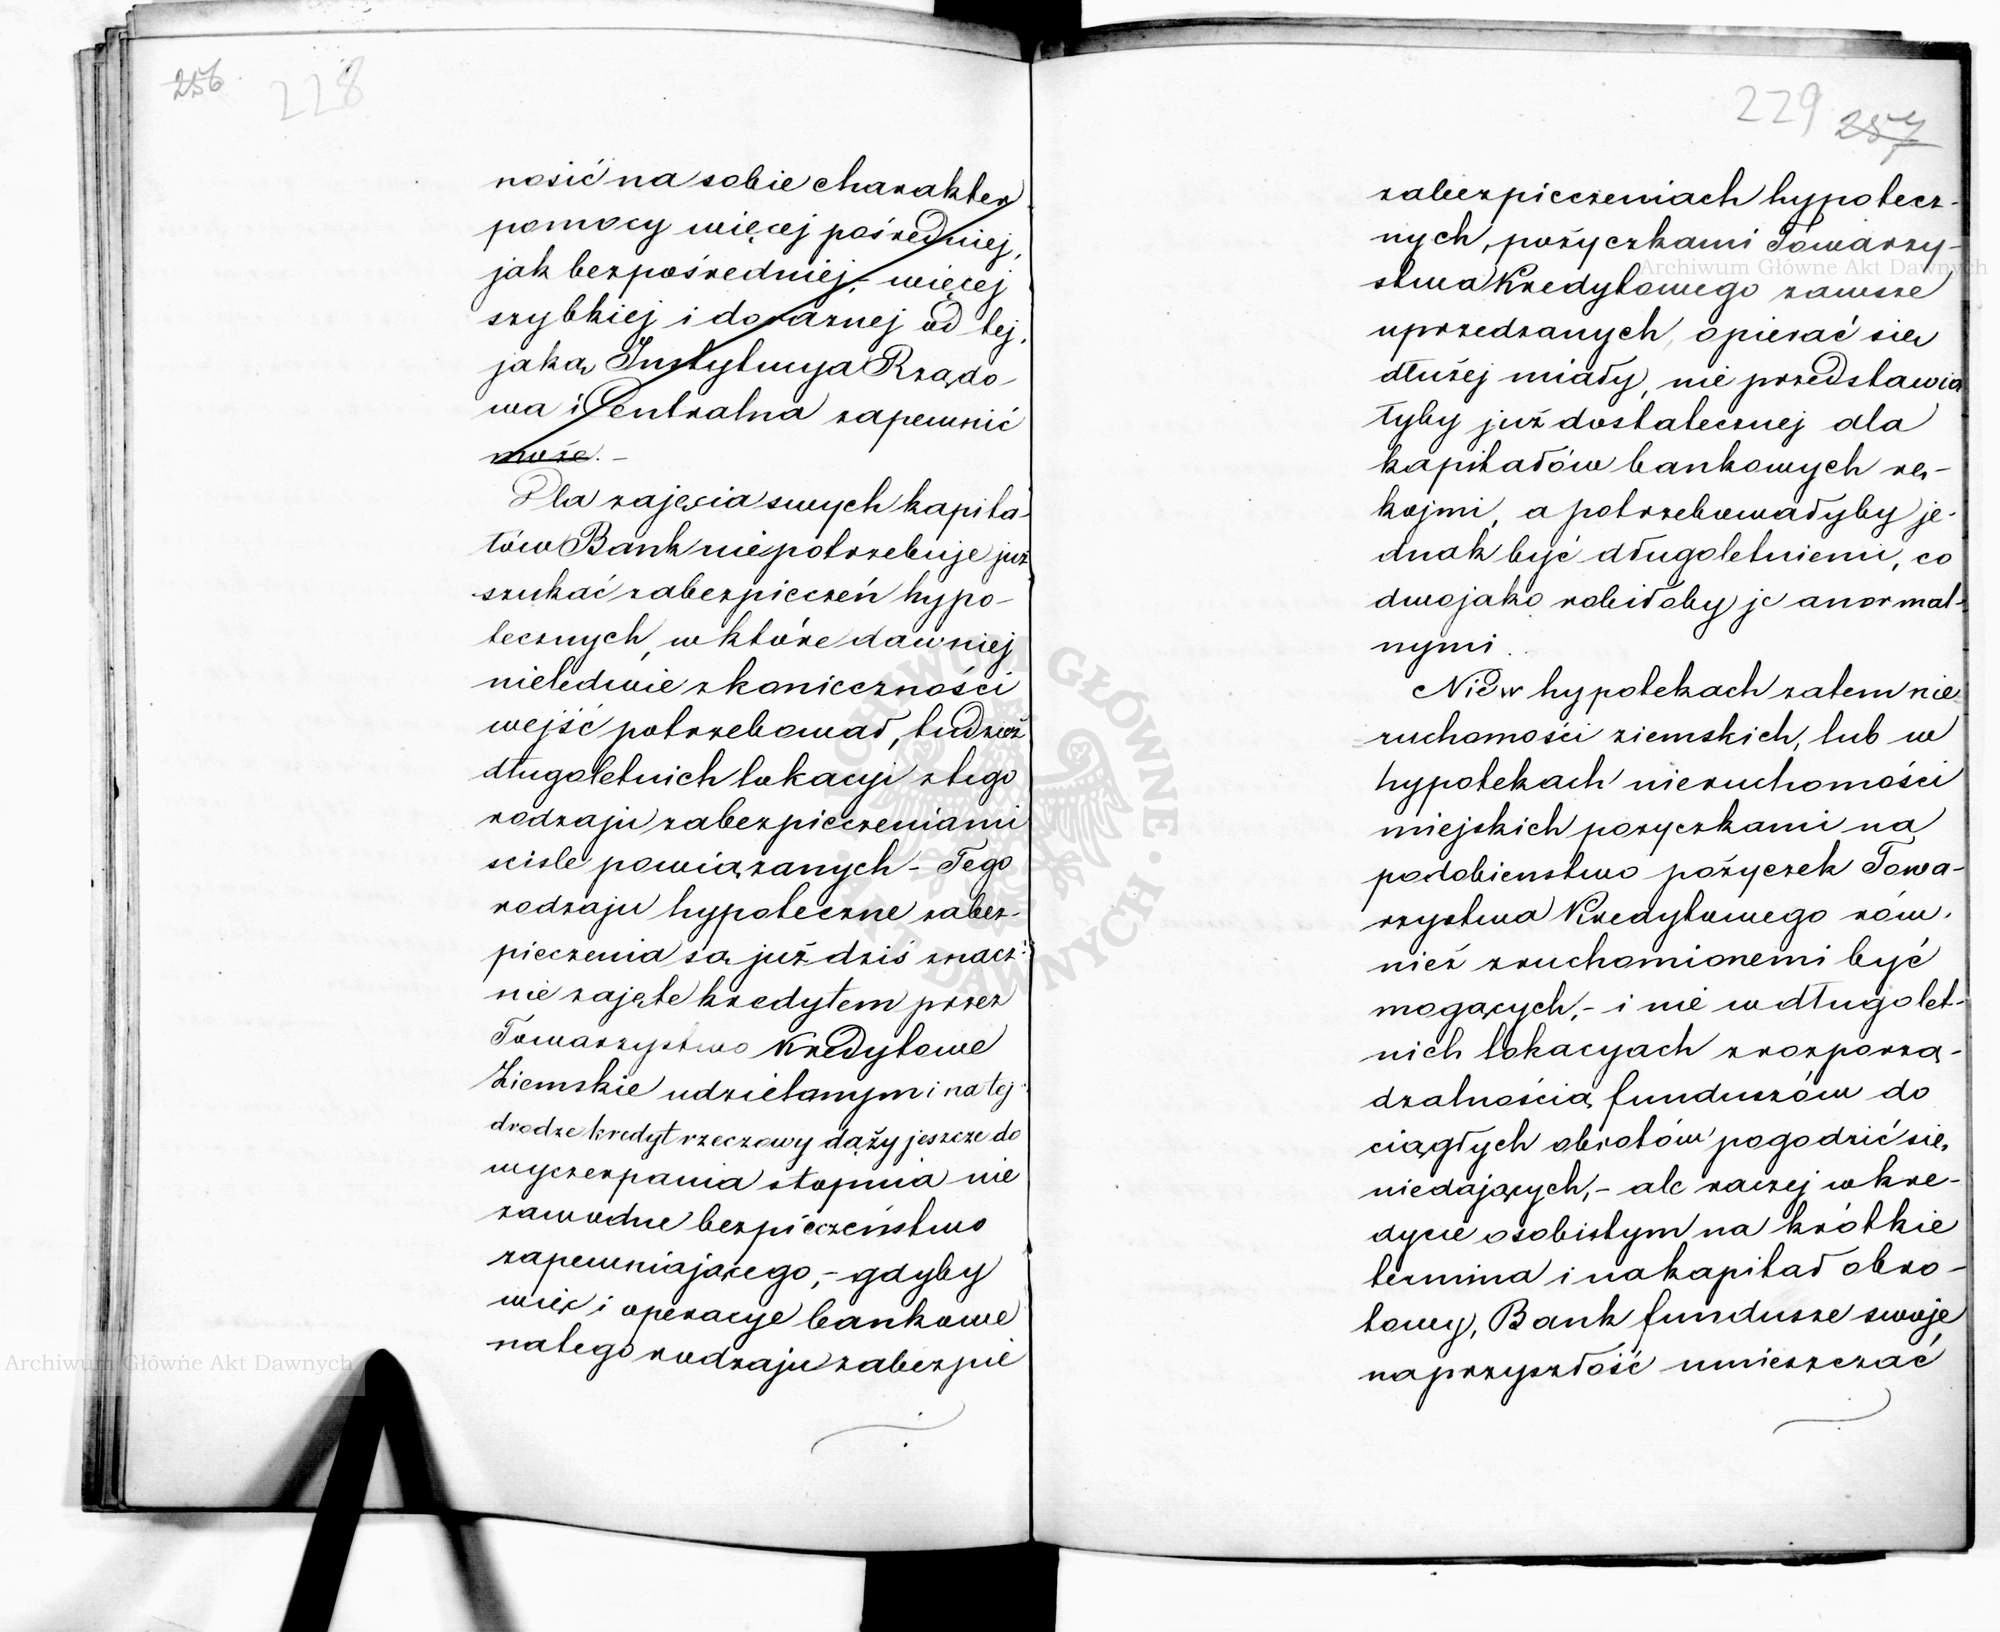 256 228
nosić na sobie charakter
pomocy więcej pośredniej,
jak bezpośredniej, – więcej
szybkiej i doraznej od tej,
jaką Instytucya Rządo-
wa i Centralna zapewnić
może. –
Dla zajęcia swych kapita-
łów Bank niepotrzebuje już
szukać zabezpieczeń hypo-
tecznych, w które dawniej
nieledwie z konieczności
wejść potrzebował, tudzież
długoletnich lokacyi z tego
rodzaju zabezpieczeniami
scisle powiązanych – Tego
rodzaju hypoteczne zabez-
pieczenia są już dziś znacz-
nie zajęte kredytem przez
Towarzystwo Kredytowe
Ziemskie udzielanym i na tej
drodze kredyt rzeczowy dąży jeszcze do
wyczerpania stopnia nie
zawodne bezpieczeństwo
zapewniającego, – gdyby
więc i operacye bankowe
na tego rodzaju zabezpie
229 257
zabezpieczeniach hypotecz-
nych, pożyczkami Towarzy-
stwa Kredytowego zawsze
uprzedzanych, opierać się
dłużej miały, nie przedstawia
łyby już dostatecznej dla
kapitałów bankowych rę-
kojmi, a potrzebowałyby je-
dnak być długoletniemi, co
dwojako robiłoby je anormal-
nymi.
Nie w hypotekach zatem nie
ruchomości ziemskich, lub w
hypotekach nieruchomości
miejskich pozyczkami na
podobienstwo pożyczek Towa-
rzystwa Kredytowego rów-
nież zruchomionemi być
mogących, – i nie w długolet-
nich lokacyach z rozporzą-
dzalnością funduszów do
ciągłych obrotów pogodzić się
niedających, – ale raczej w kre-
dycie osobistym na krótkie
termina i na kapitał obro-
towy, Bank fundusze swoje
na przyszłość umieszczać
Archiwum Główne Akt Dawnych
Archiwum Główne Akt Dawnych
ARCHIWUM GŁÓWNE AKT DAWNYCH